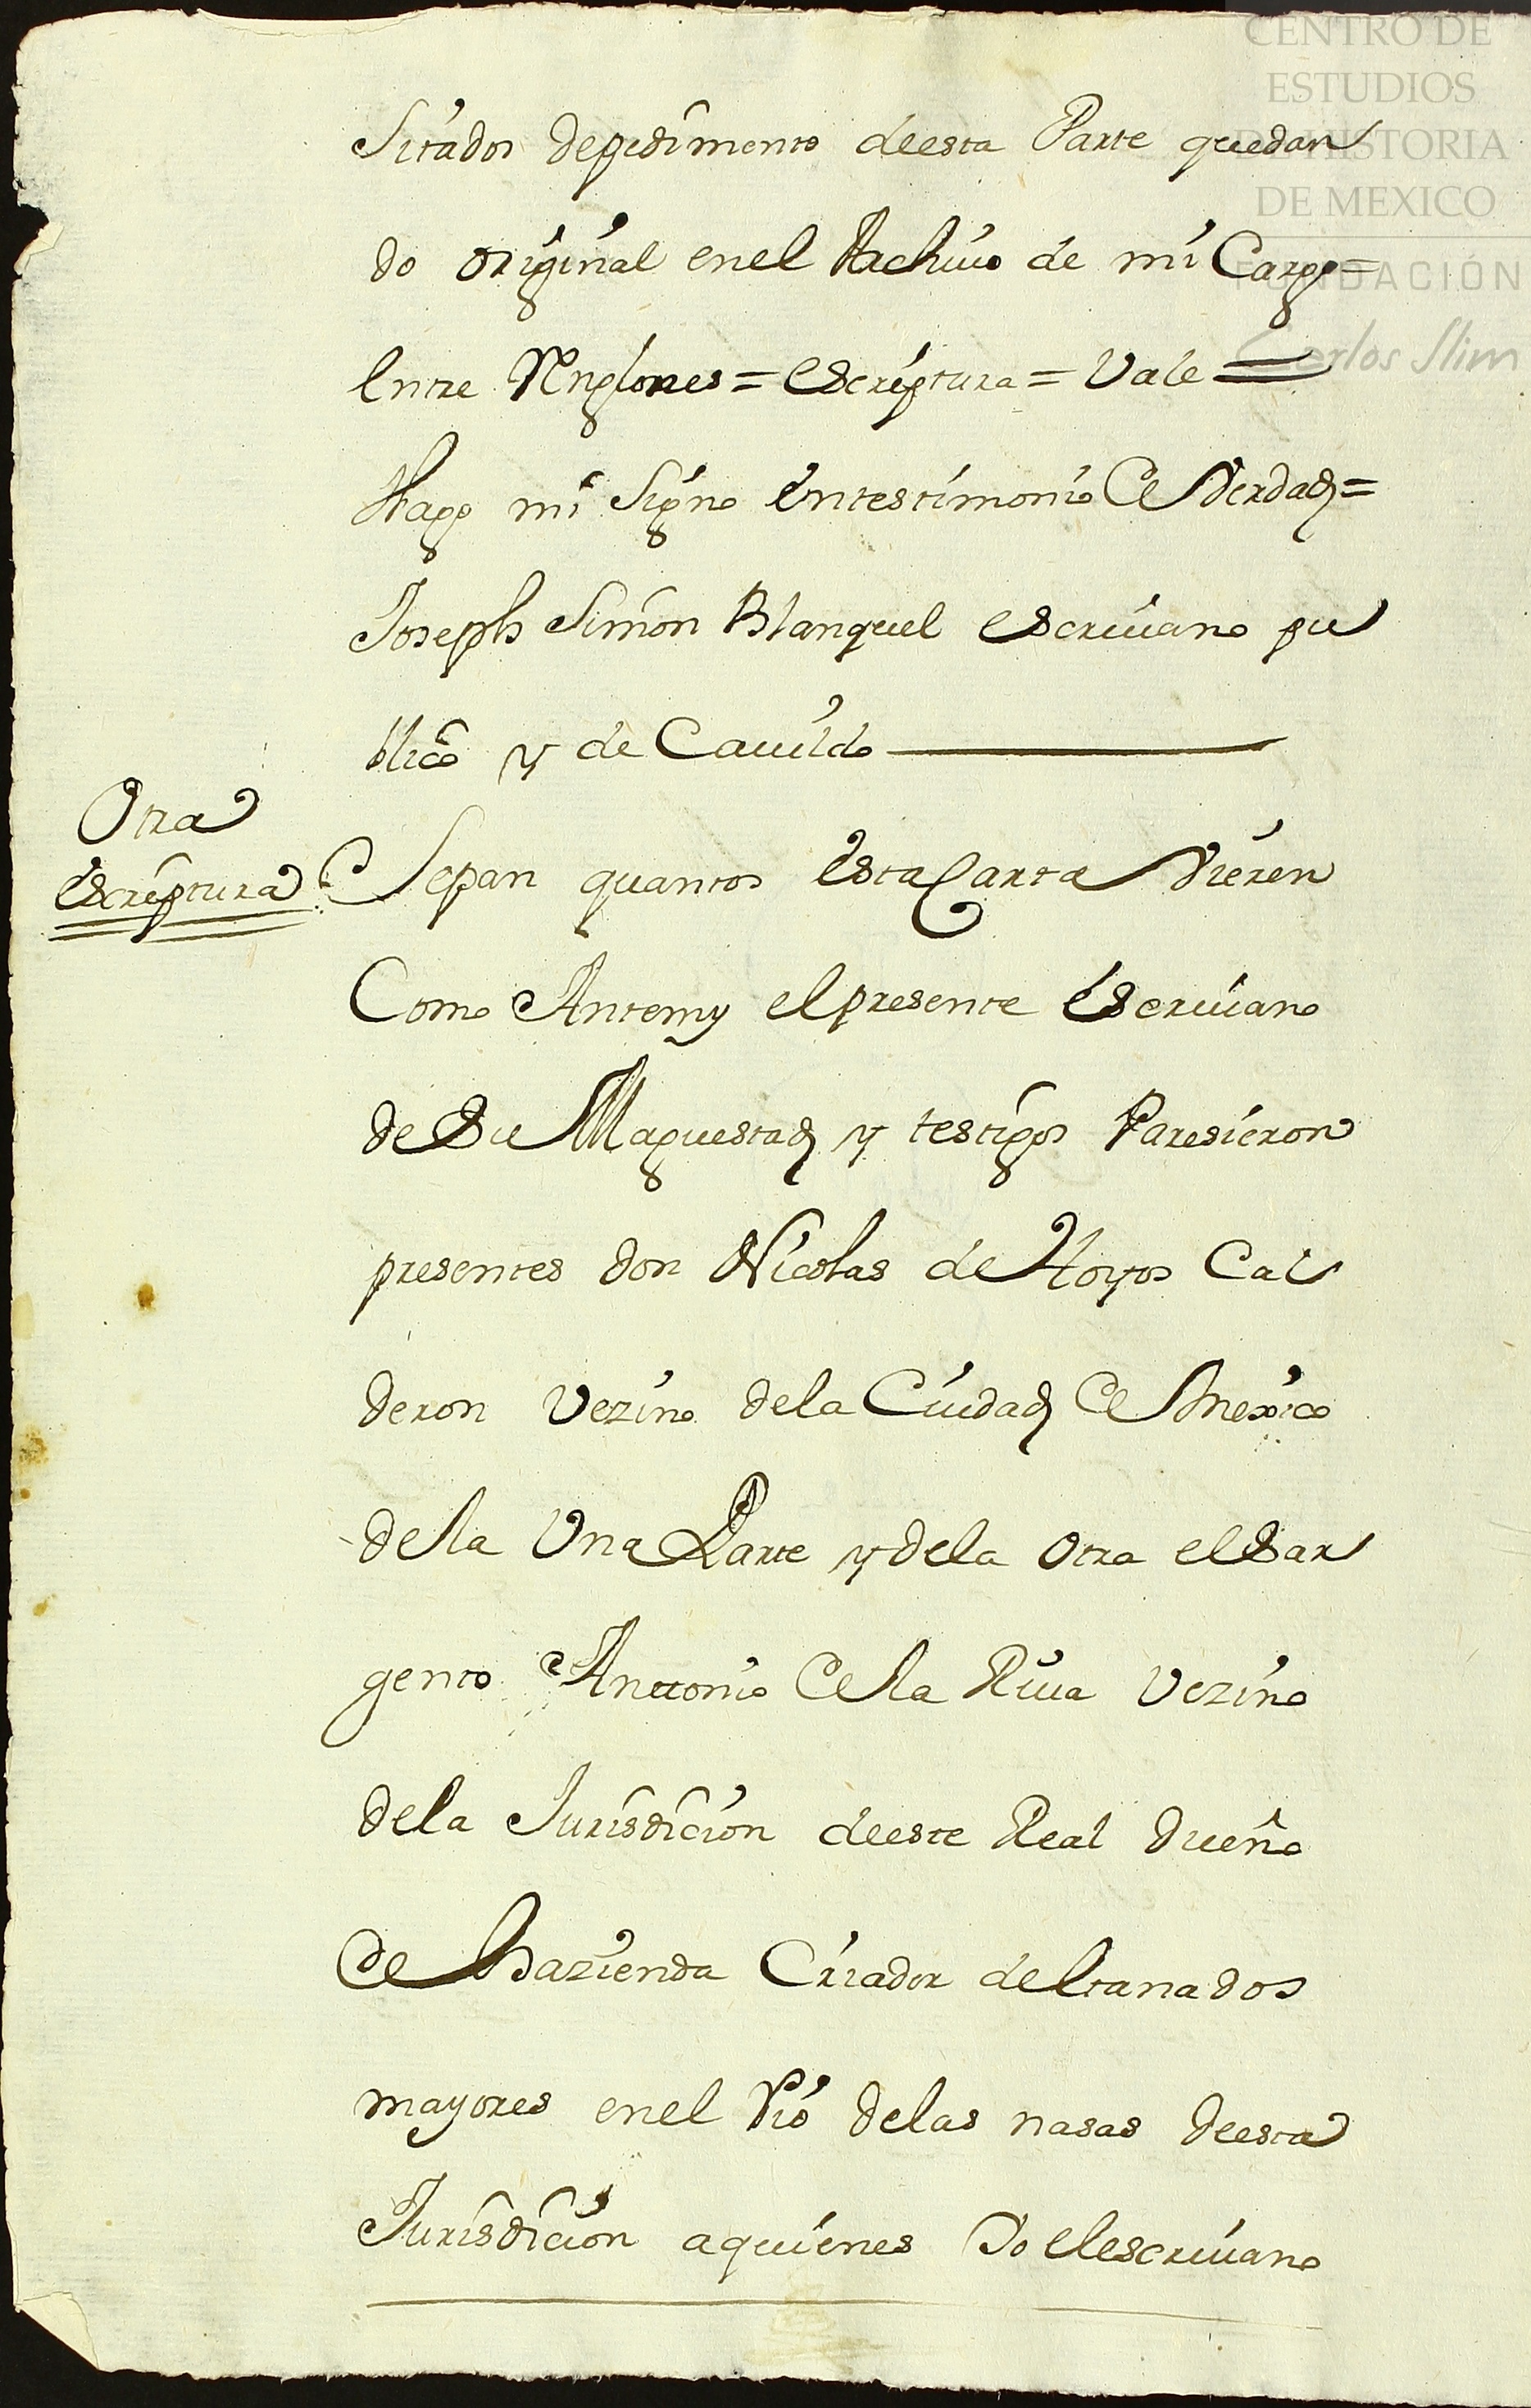 CENTRO DE
ESTUDIOS
DE HISTORIA
DE MEXICO
FUNDACIÓN
Carlos Slim
Sitados depedimento deesta Parte quedan
do original enel Archiuo de mi Cargo=
Entre Renglones = escriptura = Vale =
Hago mi Signo entestimonio de Verdad=
Joseph Simon Blanquel escriuano pu
blico y de Cauildo
Otra
escriptura
Sepan quantos esta Carta Vieren
Como Antemy elpresente escriuano
de Su Maguestad y testigos Paresieron
presentes don Nicolas de Hoyos Cal
deron Vezino dela Ciudad de Mexico
dela Una Parte y dela Otra elSar
gento Anttonio de la Riua Vezino
dela Jurisdicion deeste Real dueño
de hazienda Criador de Ganados
mayores enel Rio delas nasas deesta
Jurisdicion aquienes Yo elescriuano